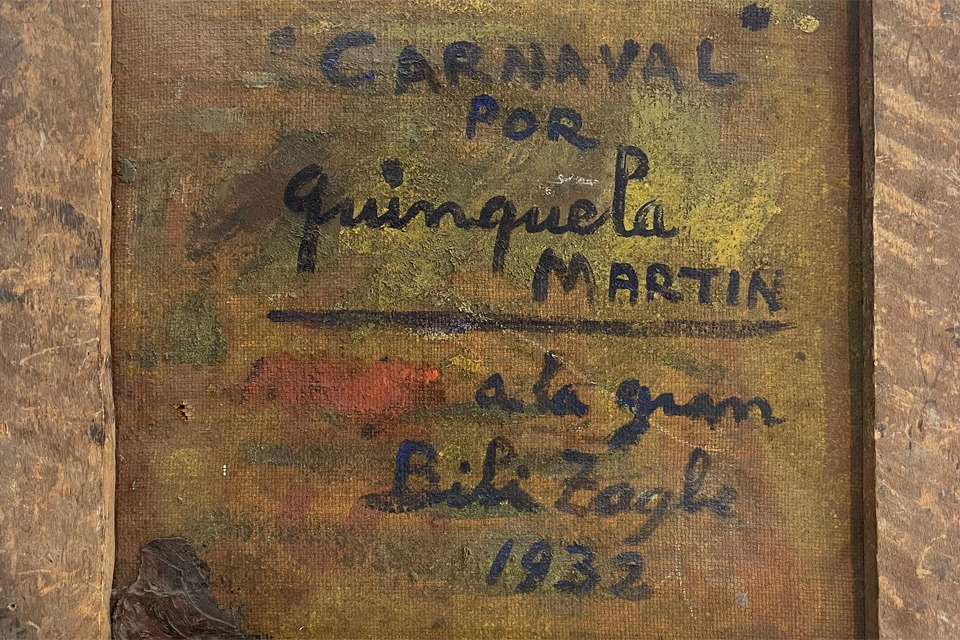 "CARNAVAL"
POR
quinquela
MARTIN
a la gran
Bibi Zogbe
1932